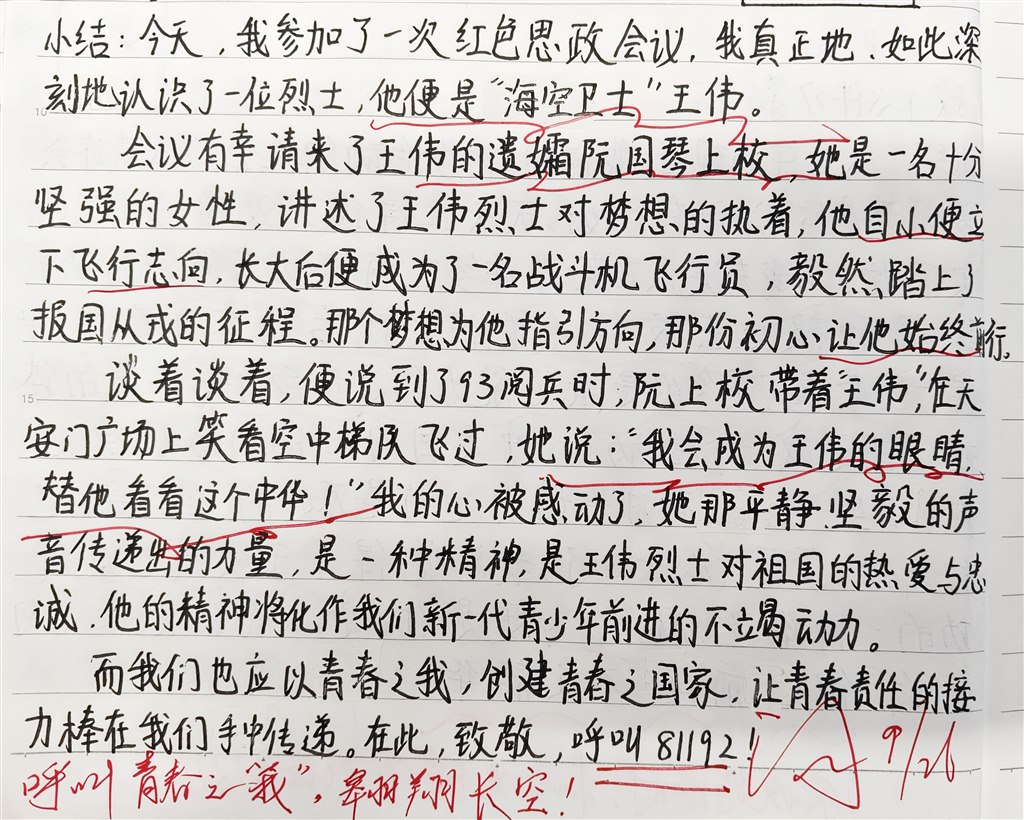 小结：今天，我参加了一次红色思政会议，我真正地、如此深
刻地认识了一位烈士，他便是“海空卫士”王伟。
会议有幸请来了王伟的遗孀阮国琴上校，她是一名十分
坚强的女性，讲述了王伟烈士对梦想的执着，他自小便立
下飞行志向，长大后便成为了一名战斗机飞行员，毅然踏上了
报国从戎的征程。那个梦想为他指引方向，那份初心让他始终前行。
谈着谈着，便说到了93阅兵时，阮上校带着“王伟”，在天
安门广场上笑看空中梯队飞过，她说：“我会成为王伟的眼睛，
替他看看这个中华！”我的心被感动了，她那平静、坚毅的声
音传递出的力量，是一种精神，是王伟烈士对祖国的热爱与忠
诚，他的精神将化作我们新一代青少年前进的不竭动力。
而我们也应以青春之我，创建青春之国家，让青春责任的接
力棒在我们手中传递。在此，致敬，呼叫81192！
呼叫“青春之我”，翱翔长空！
9/26
10
15